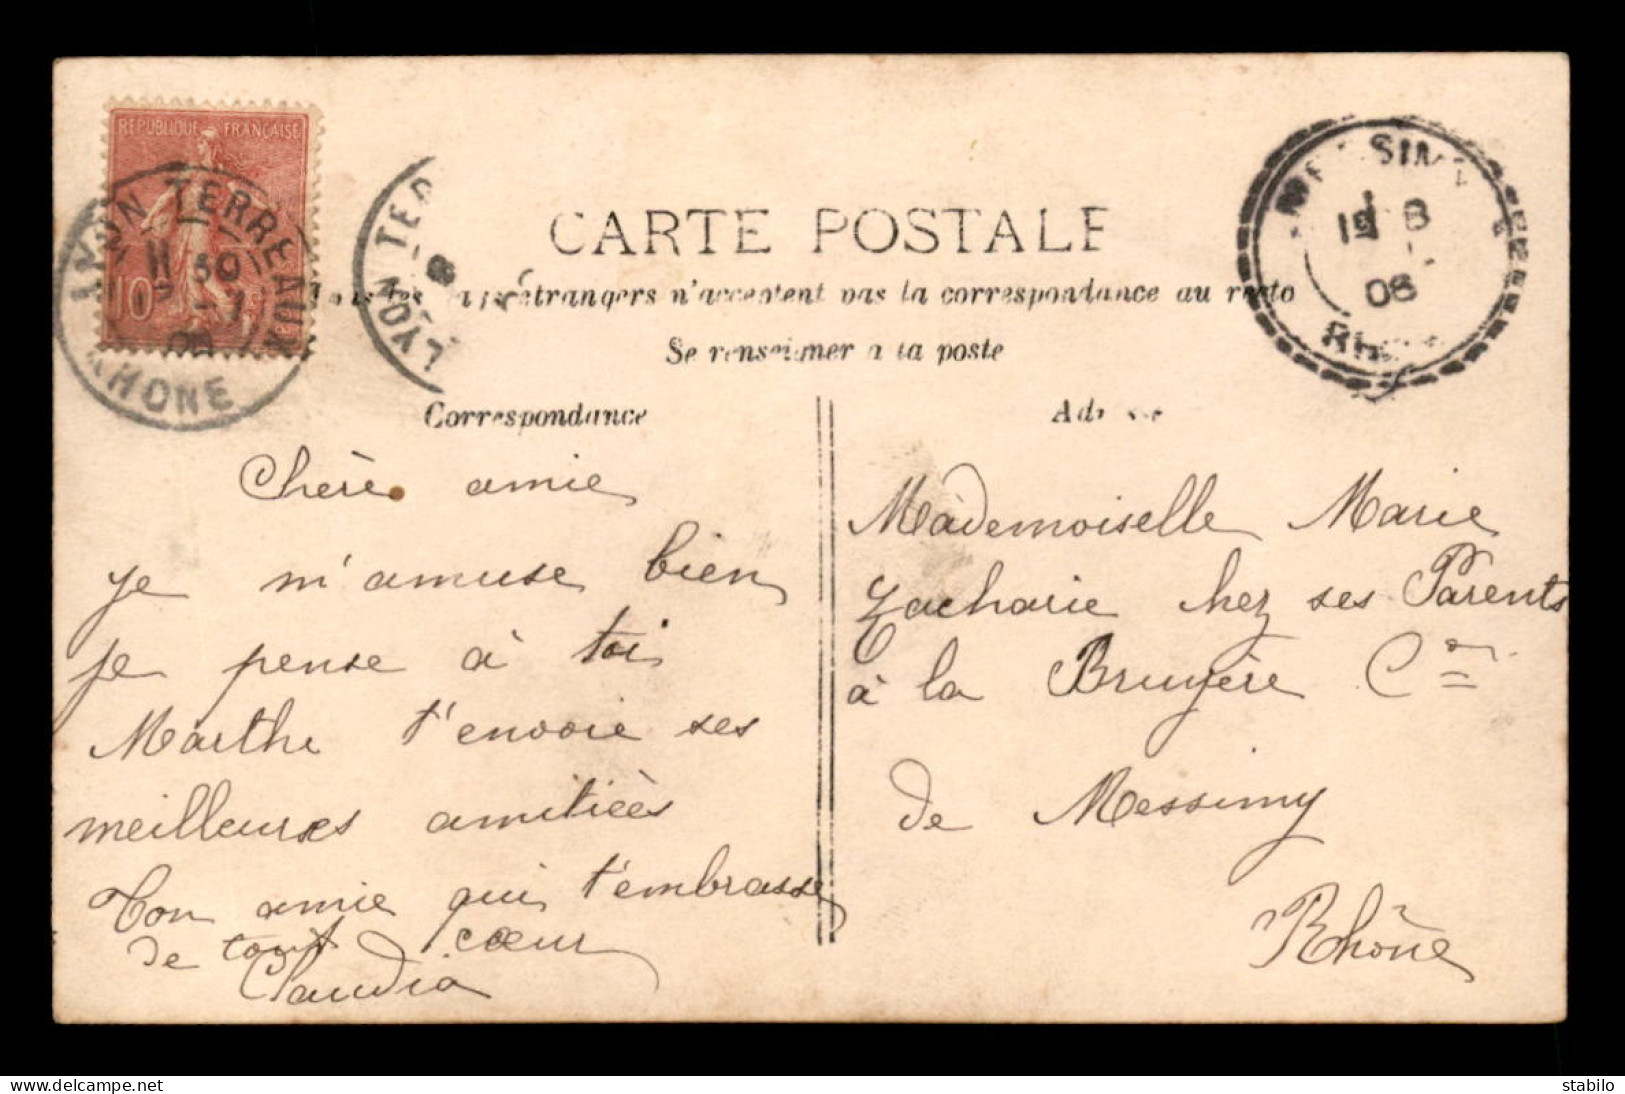 REPUBLIQUE FRANÇAISE
10
LYON TERREAUX
11 30
RHONE
LYON TER
SIM
08
CARTE POSTALE
étrangers n'acceptent pas la correspondance au recto
Se renseigner a la poste
Correspondance
Chère amie
je m'amuse bien
je pense à toi
Marthe t'envoie ses
meilleures amitiées
Ton amie qui t'embrasse
de tout cœur
Claudia
Mademoiselle Marie
Zacharie chez ses Parents
à la Bruyère Cne
de Messimy
Rhône
www.delcampe.net
stabilo